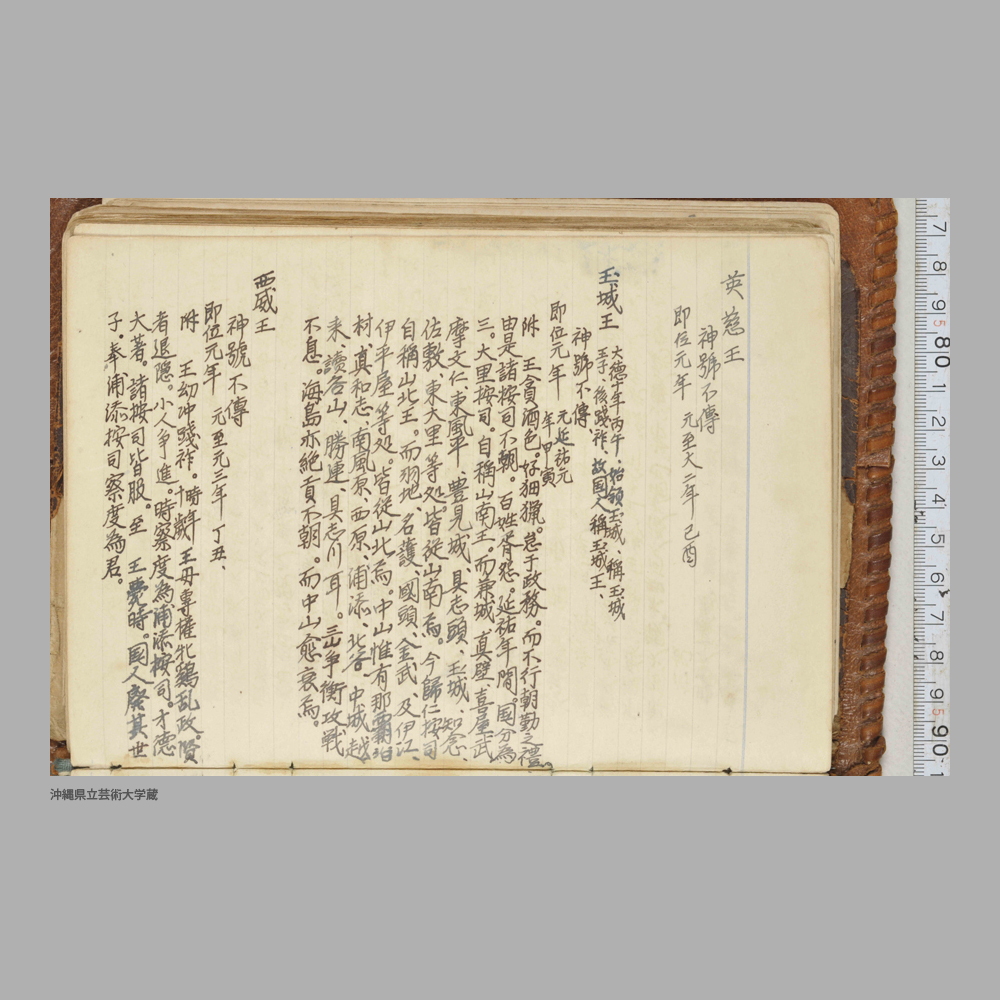 英慈王
神號不傳
即位元年 元至大二年己酉
玉城王 大德年丙午、始領玉城、稱玉城
王子、後踐祚、故国人稱玉城王、
神號不傳、
即位元年 元延祐元
年甲寅
附 王貪酒色。好畋獵。怠于政務。而不行朝勤之禮。
由是諸按司不朝。百姓胥怨。延祐年間。国分為
三。大里按司。自稱山南王。而兼城、真壁、喜屋武
摩文仁、東風平、豊見城、具志頭、玉城、知念、
佐敷、東大里等処。皆従山南焉。今歸仁按司
自稱山北王。而羽地、名護、國頭、金武、及伊江、
伊平屋等処。皆従山北焉。中山惟有那覇泊
村、真和志、南風原、西原、浦添、北谷、中城、越
来、讀谷山、勝連、具志川耳。三山争衡攻戦
不息。海島亦絶貢不朝。而中山愈衰焉。
西威王
神號不傳
即位元年 元至元三年丁丑、
附 王幼冲踐祚。時年十歳 王母專權牝鷄乱政。賢
者退隠。小人争進。時察度為浦添按司。才德
大著。諸按司皆服。至 王薨時。國人廃其世
子。奉浦添按司察度為君。
7 8 9 5 80 1 2 3 4 5 6 7 8 9 5 90 1
沖縄県立芸術大学蔵